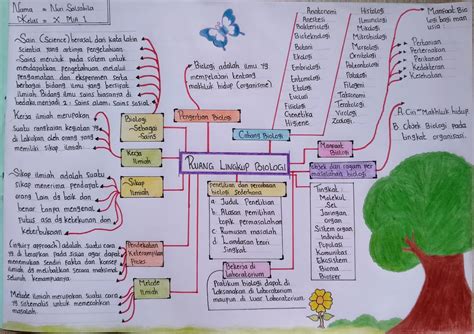 Nama = Nuri Salsabila
Kelas = X MIA 1
~ Sain (Science) berasal dari kata latin
scientia yang artinya pengetahuan
~ Sains merujuk pada sistem untuk
mendapatkan pengetahuan melalui
pengamatan dan eksperimen serta
berbagai bidang ilmu yang bersifat
ilmiah. Bidang ilmu sains biasanya di
bedakan menjadi 2 : Sains alam, Sains sosial
Kerja ilmiah merupakan
Suatu rangkaian kegiatan yg
di lakukan oleh orang yang
memiliki sikap ilmiah
~ Sikap ilmiah adalah suatu
sikap menerima pendapat
orang lain yg baik dan
benar tanpa mengenal
putus asa dg ketekunan dan
keterbukaan
(inquiry approach) adalah suatu cara
yg di terapkan pada siswa agar dapat
menemukan sendiri fakta dan konsep
ilmiah, dg melibatkan secara maksimal
seluruh kemampuanya.
Metode ilmiah merupakan suatu cara
yg sistematis untuk memecahkan
masalah
Biologi
- Sebagai
- Sains
Kerja
Ilmiah
Sikap
Ilmiah
Pendekatan
Keterampilan
Proses
Metode
Ilmiah
Biologi adalah ilmu yg
mempelajari tentang
makhluk hidup (Organisme)
Pengertian Biologi
Cabang Biologi
RUANG LINGKUP BIOLOGI
penelitian dan percobaan
biologi sederhana
a Judul Penelitian
b. Alasan pemilihan
topik permasalahan
c Rumusan masalah
d Landasan teori
Singkat
Bekerja di
Laboratorium
Praktikum biologi dapat di
laksanakan di laboratorium
maupun di luar laboratorium
Anatomi
Anestesi
Bakteriologi
Bioteknologi
Botani
Ekologi
Ornitologi
Embriologi
Entomologi
Evolusi
Fisiologi
Genetika
Higiene
Histologi
Imunologi
Taksonomi
Teratologi
Virologi
Zoologi
Manfaat
Biologi
Manfaat Bio
logi bagi manu
sia :
Pertanian
Peternakan
Kedokteran
Kesehatan
Objek dan ragam per
masalahan biologi
A. Ciri - Makhluk hidup
B. Objek Biologi pada
tingkat organisasi.
Tingkat :
Molekul
Sel
Jaringan
organ
Sistem organ
Individu
Populasi
Komunitas
Ekosistem
Bioma
Biosper